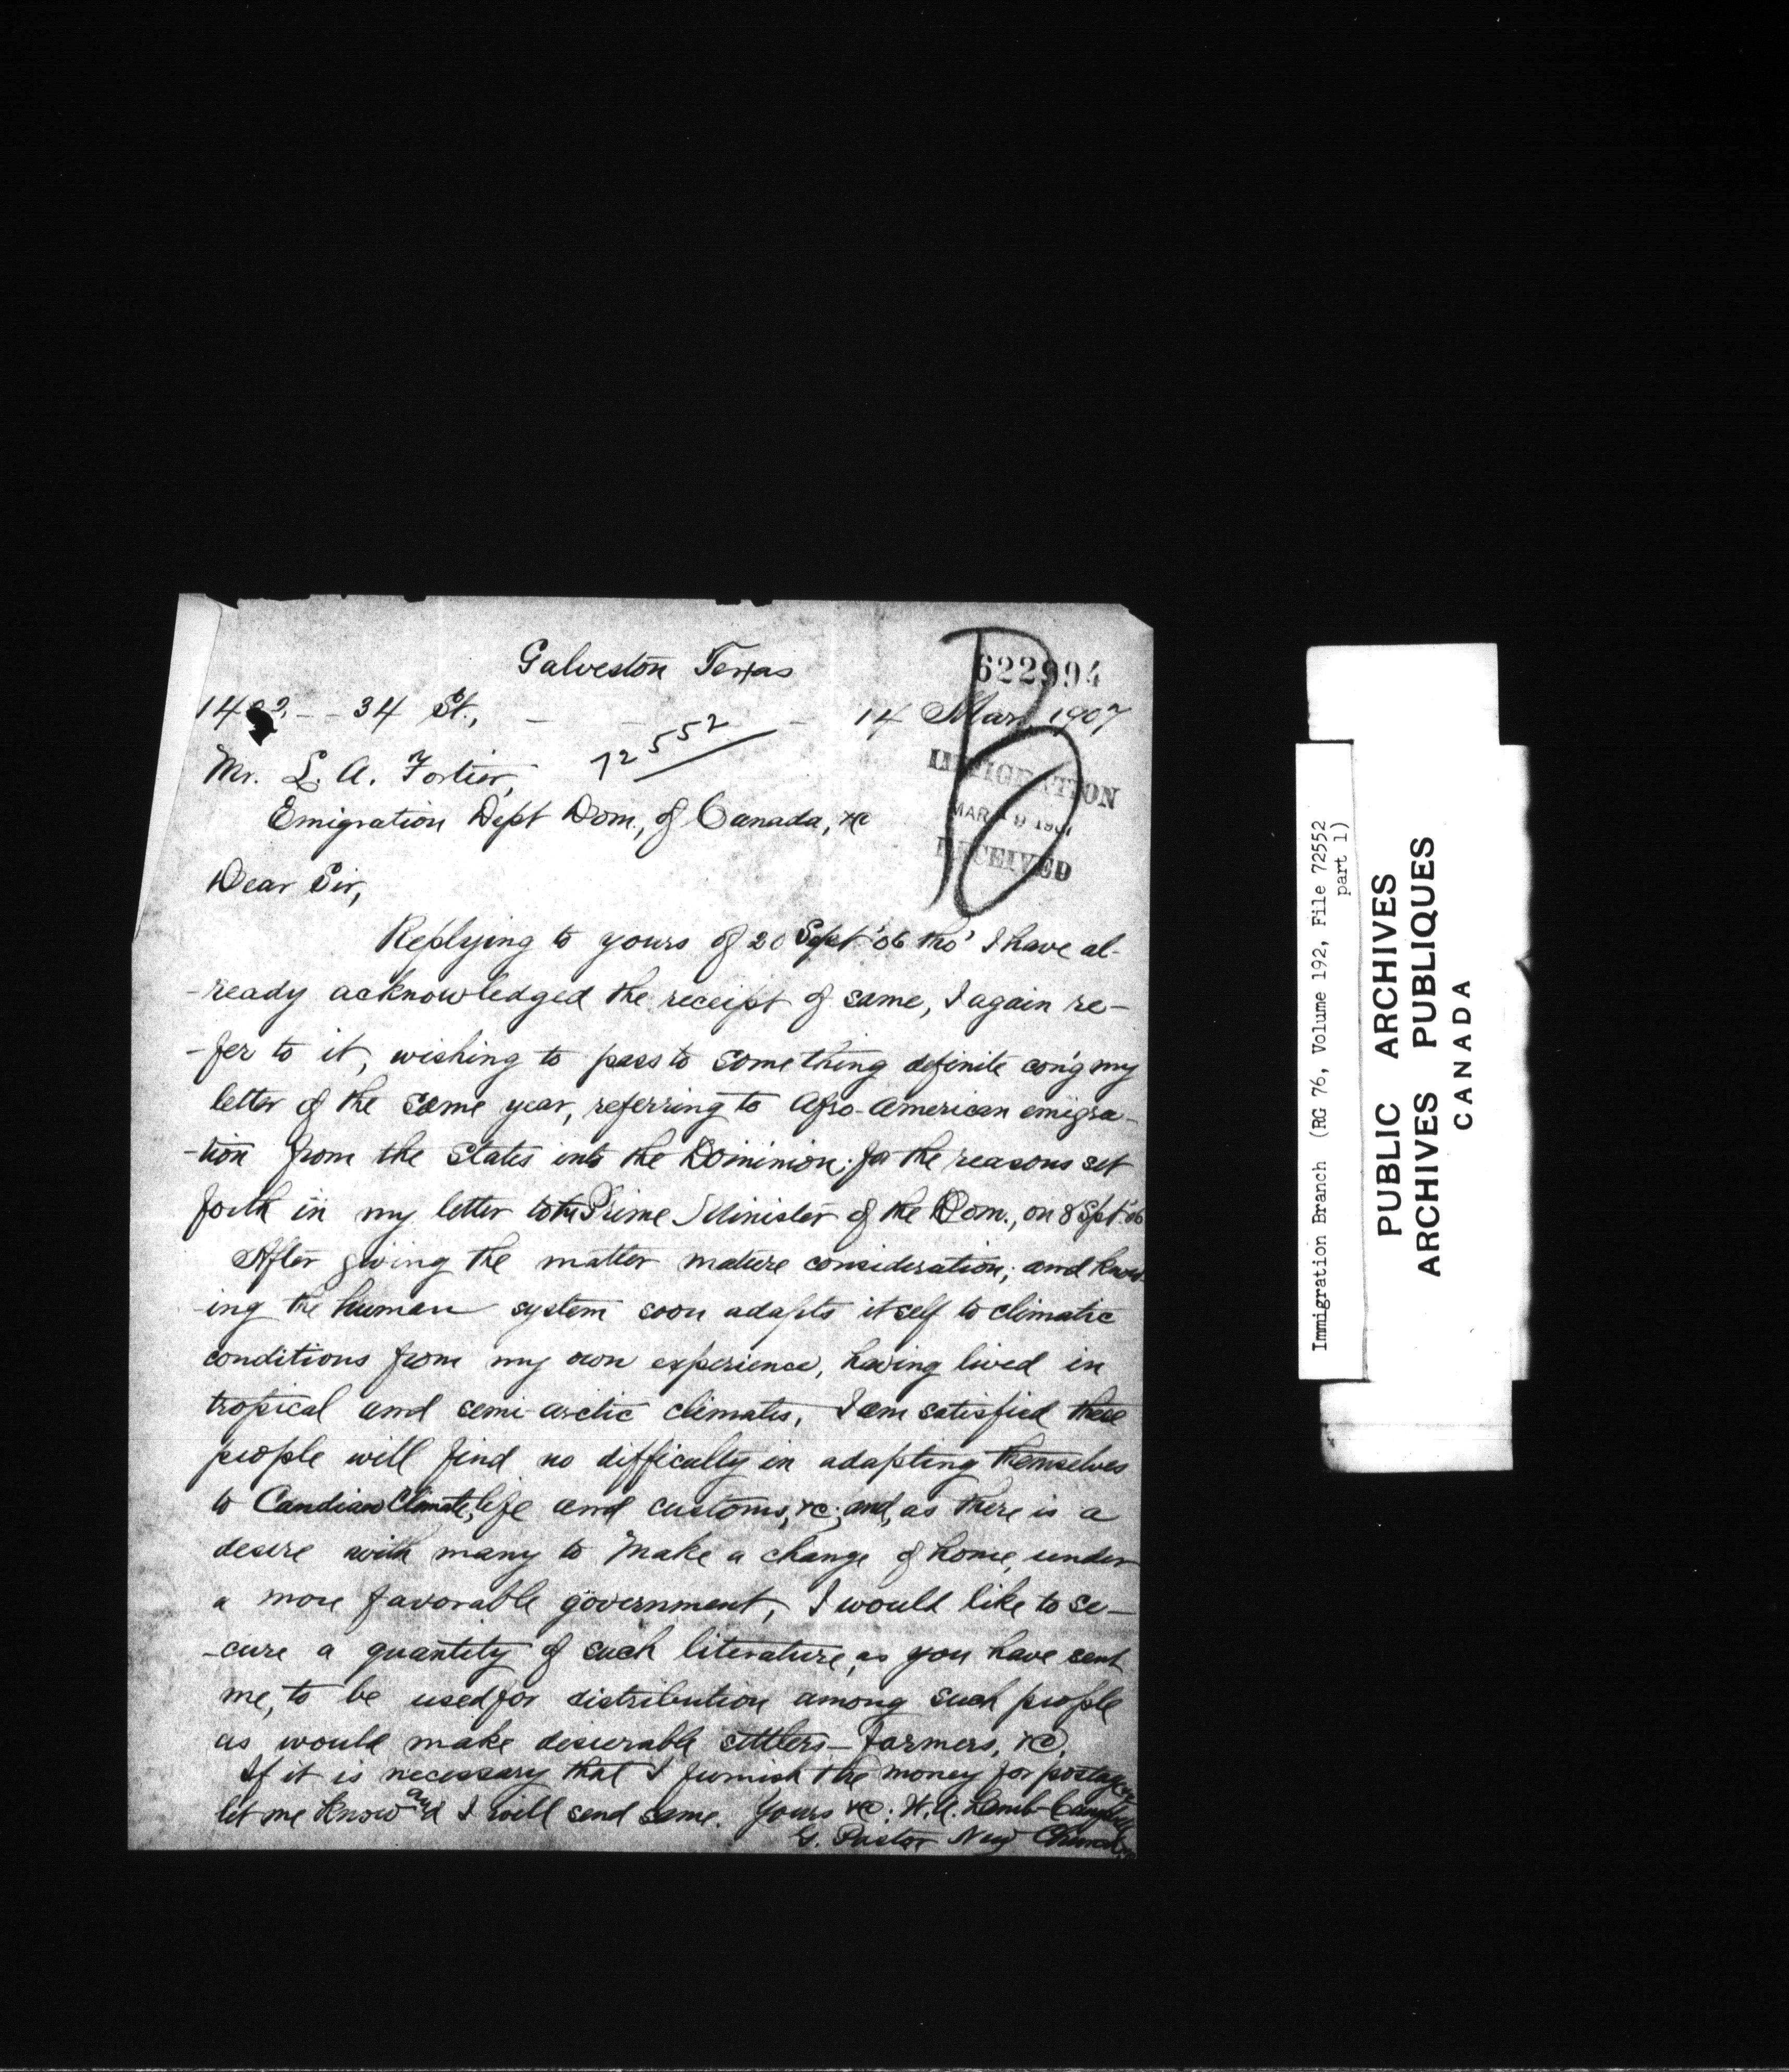 Galveston Texas
622994
34 St., 14 Mar, 1907
72552
Mr. L. A. Fortier,
Emigration Dept Dom., of Canada, &c
IMMIGRATION
MAR 19 1907
RECEIVED
Dear Sir,
Replying to yours of 20 Sept '06 tho' I have al-
-ready acknowledged the receipt of same, I again re-
-fer to it, wishing to pass to something definite con'g my
letter of the same year, referring to Afro-American emigra-
-tion from the States into the Dominion; for the reasons set
forth in my letter to the Prime Minister of the Dom., on 8 Spt. '06
After giving the matter mature consideration; and know-
-ing the human system soon adapts itself to climatic
conditions from my own experience, having lived in
tropical and semi-arctic climates, I am satisfied these
people will find no difficulty in adapting themselves
to Candian Climate, life and customs, &c; and, as there is a
desire with many to make a change of home, under
a more favorable government, I would like to se-
-cure a quantity of such literature, as you have sent
me, to be used for distribution among such people
as would make desierable settlers - farmers, &c.
If it is necessary that I furnish the money for postage
let me know and I will send same. Yours &c: W. A. Lamb-Campbell
G. Pastor New Church
Immigration Branch (RG 76, Volume 192, File 72552
part 1)
PUBLIC ARCHIVES
ARCHIVES PUBLIQUES
CANADA